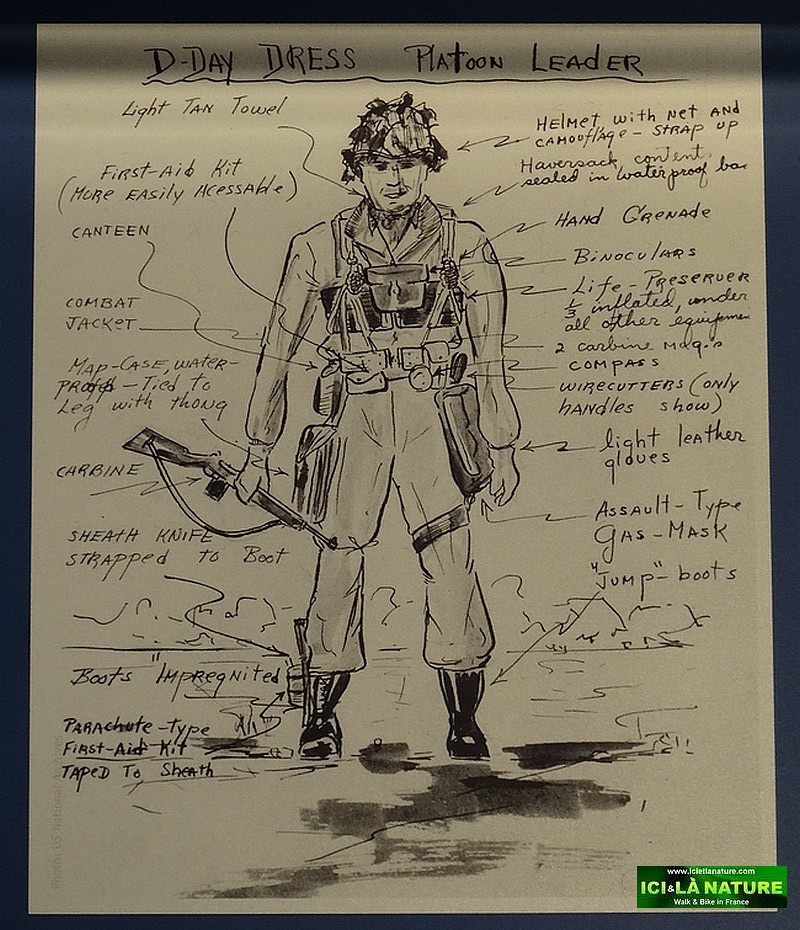 D-DAY DRESS PLATOON LEADER
Light TAN Towel
FIRST-AID KIT
(MORE EASILY ACESSABLE)
CANTEEN
COMBAT
JACKET
MAP-CASE, WATER-
PROOF - TIED to
Leg with thong
CARBINE
SHEATH KNIFE
STRAPPED to Boot
Boots "IMPREGNITED
PARACHUTE-TYPE
FIRST-AID KIT
TAPED TO SHEATH
HELMET with NET AND
CAMOUflAGE - STRAP UP
Haversack, content
sealed in waterproof ba
HAND GRENADE
BINOCULARS
Life-PRESERVER
1/3 inflated, under
all other equipme
2 carbine MAG.s
COMPASS
WIRECUTTERS (only
handles show)
light leather
gloves
ASSAULT-TYPE
GAS-MASK
"JUMP"-boots
Photo: US National
www.icietlanature.com
ICI&LÀ NATURE
Walk & Bike in France